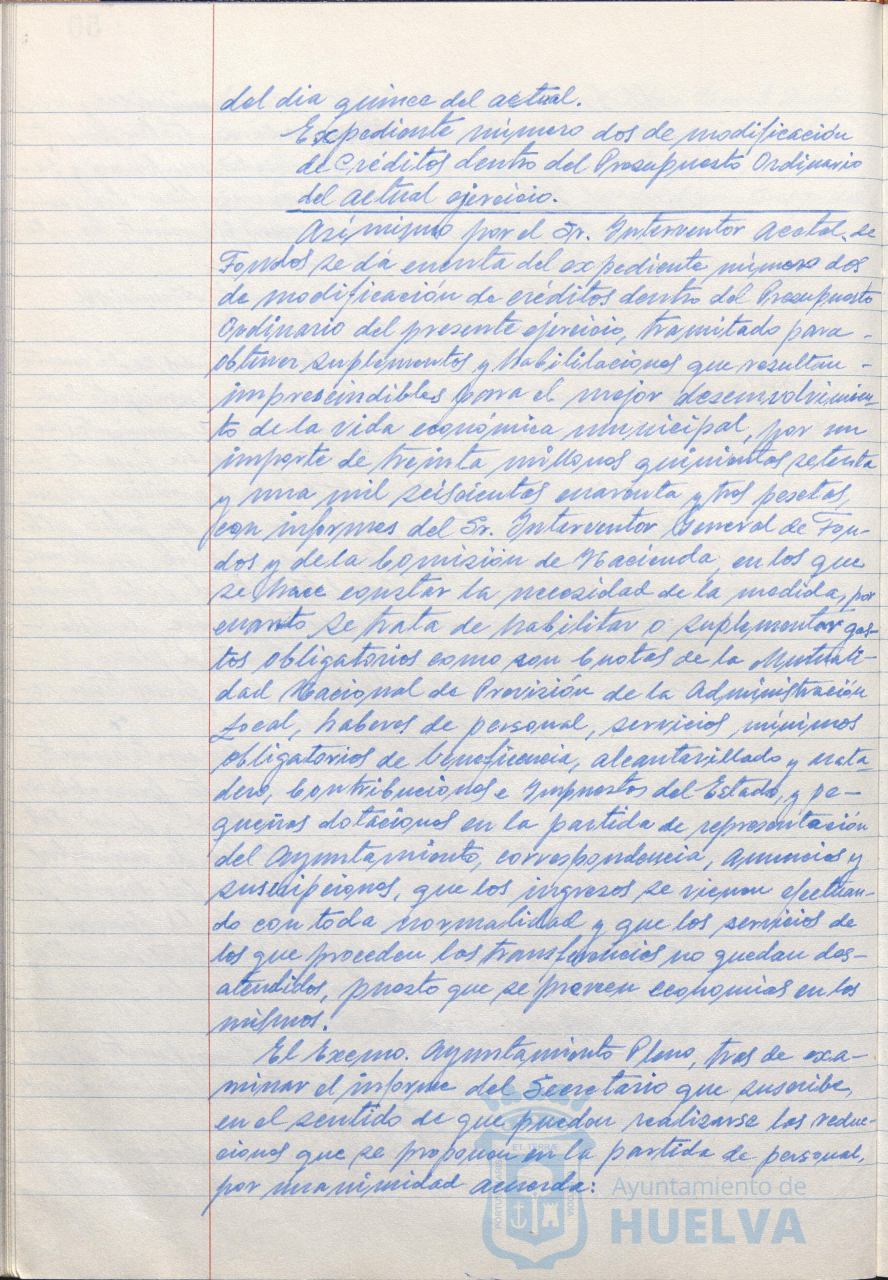 del dia quince del actual.
Expediente número dos de modificación
de Créditos dentro del Presupuesto Ordinario
del actual ejercicio.
Asimismo por el Sr. Interventor Acctal. de
Fondos se dá cuenta del expediente número dos
de modificación de créditos dentro del Presupuesto
Ordinario del presente ejercicio, tramitado para -
obtener suplementos y habilitaciones que resultan -
imprescindibles para el mejor desenvolvimien-
to de la vida económica municipal, por un
importe de treinta millones quinientas setenta
y una mil seiscientas cuarenta y tres pesetas,
con informes del Sr. Interventor General de Fon-
dos y de la Comisión de Hacienda, en los que
se hace constar la necesidad de la medida, por
cuanto se trata de habilitar o suplementar gas-
tos obligatorios como son Cuotas de la Mutuali-
dad Nacional de Previsión de la Administración
Local, haberes de personal, servicios mínimos
obligatorios de beneficencia, alcantarillado y mata-
dero, Contribuciones e Impuestos del Estado, y pe-
queñas dotaciones en la partida de representación
del Ayuntamiento, correspondencia, anuncios y
suscripciones, que los ingresos se vienen efectuan-
do con toda normalidad y que los servicios de
los que proceden las transferencias no quedan des-
atendidos, puesto que se preveen economías en los
mismos.
El Excmo. Ayuntamiento Pleno, tras de exa-
minar el informe del Secretario que suscribe,
en el sentido de que pueden realizarse las reduc-
ciones que se proponen en la partida de personal,
por unanimidad acuerda:
Ayuntamiento de
HUELVA